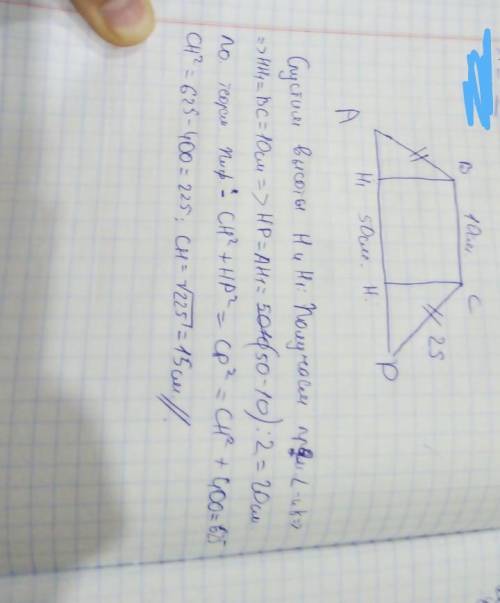 B 10см C
25
A H₁ 50см. H. D
Опустим высоты H и H₁. Получаем
=> HH₁ = BC = 10см => HP = AH₁ = (50-10) : 2 = 20см
по теорем Пиф: CH² + HP² = CP² = CH² + 400 = 625
CH² = 625 - 400 = 225; CH = √225 = 15см //.